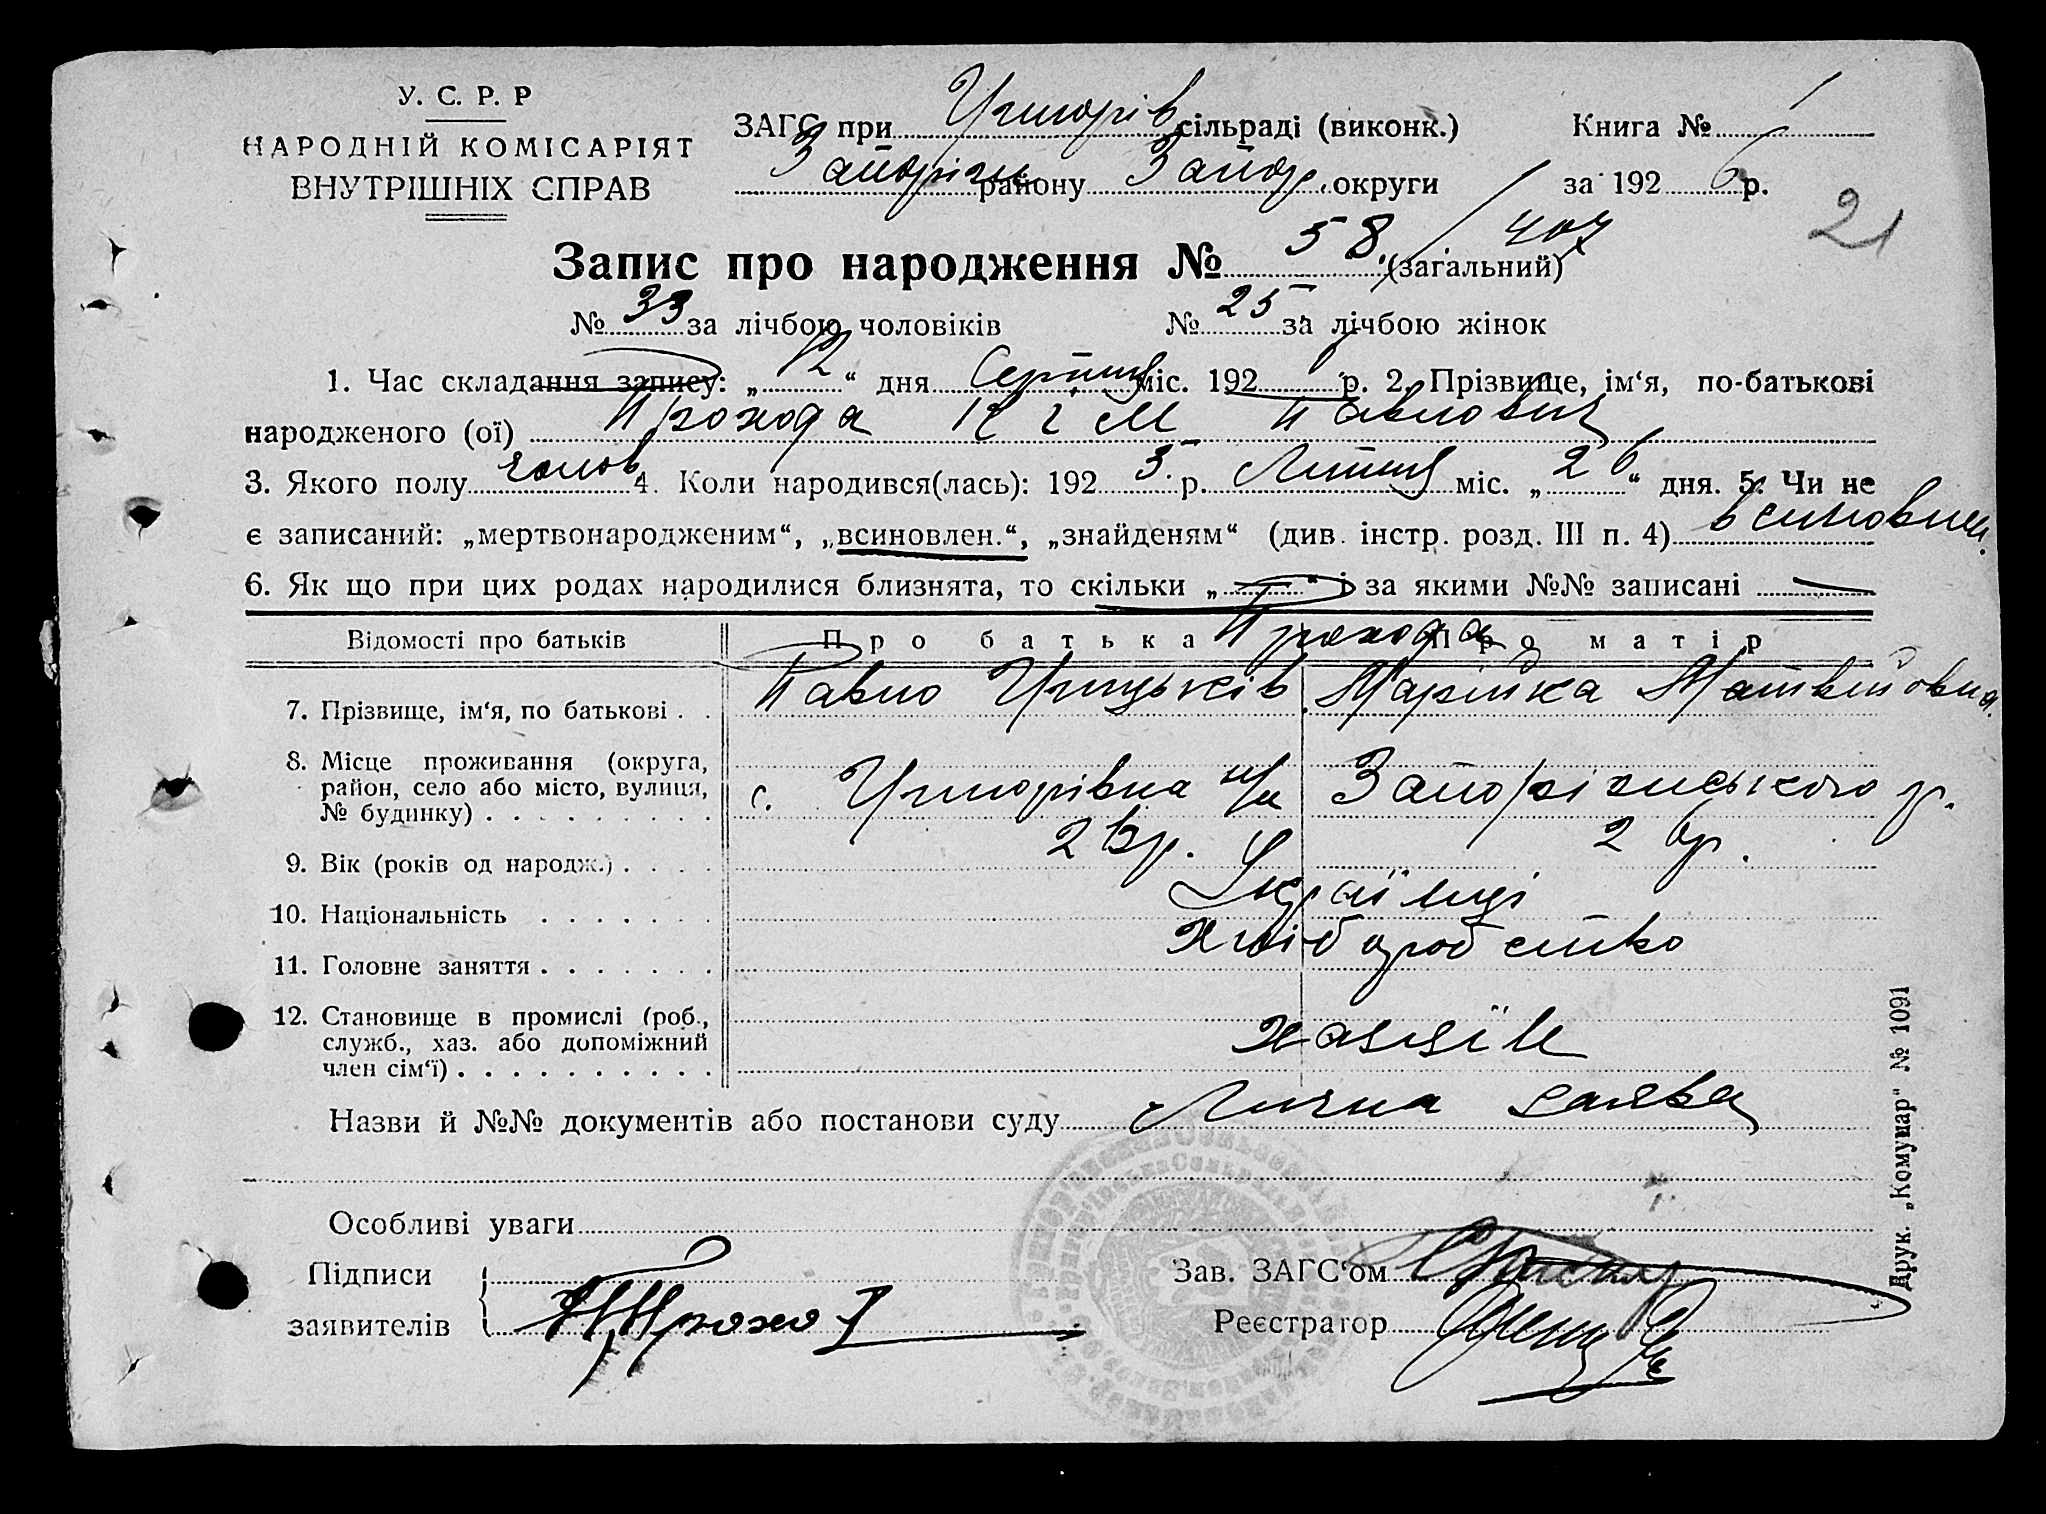 У. С. Р. Р
НАРОДНІЙ КОМІСАРІЯТ
ВНУТРІШНІХ СПРАВ
ЗАГС при Григорів сільраді (виконк.) Книга № 1
Запоріж району Запор. округи за 1926 р.
21
Запис про народження № 58. (загальний) 407
№ 33 за лічбою чоловіків № 25 за лічбою жінок
1. Час складання запису: „12“ дня Серпня міс. 192 р. 2. Прізвище, ім‘я, по-батькові
народженого (ої) Прохода Кім Павлович
3. Якого полу чолов 4. Коли народився(лась): 1925 р. Липня міс. „26“ дня. 5. Чи не
є записаний: „мертвонародженим“, „всиновлен.“, „знайденям“ (див. інстр. розд. III п. 4) всиновлен.
6. Як що при цих родах народилися близнята, то скільки „—“ і за якими №№ записані —
Відомості про батьків Про батька Про матір
Прохода
7. Прізвище, ім‘я, по батькові . . Павло Грицьків. Марійка Матвійовна.
8. Місце проживання (округа,
район, село або місто, вулиця,
№ будинку) . . . . . . . . . с. Григорівка Запоріжського р.
9. Вік (років од народж.) . . . . 26р. 26р.
10. Національність . . . . . . . Українці
11. Головне заняття . . . . . . . Хліборобство
12. Становище в промислі (роб.,
служб., хаз. або допоміжний
член сім‘ї) . . . . . . . . . . хазяїн
Назви й №№ документів або постанови суду Лична заява
Особливі уваги
Підписи
заявителів П Прохо
Зав. ЗАГС‘ом
Реєстратор
Друк. „Комунар“ № 1091